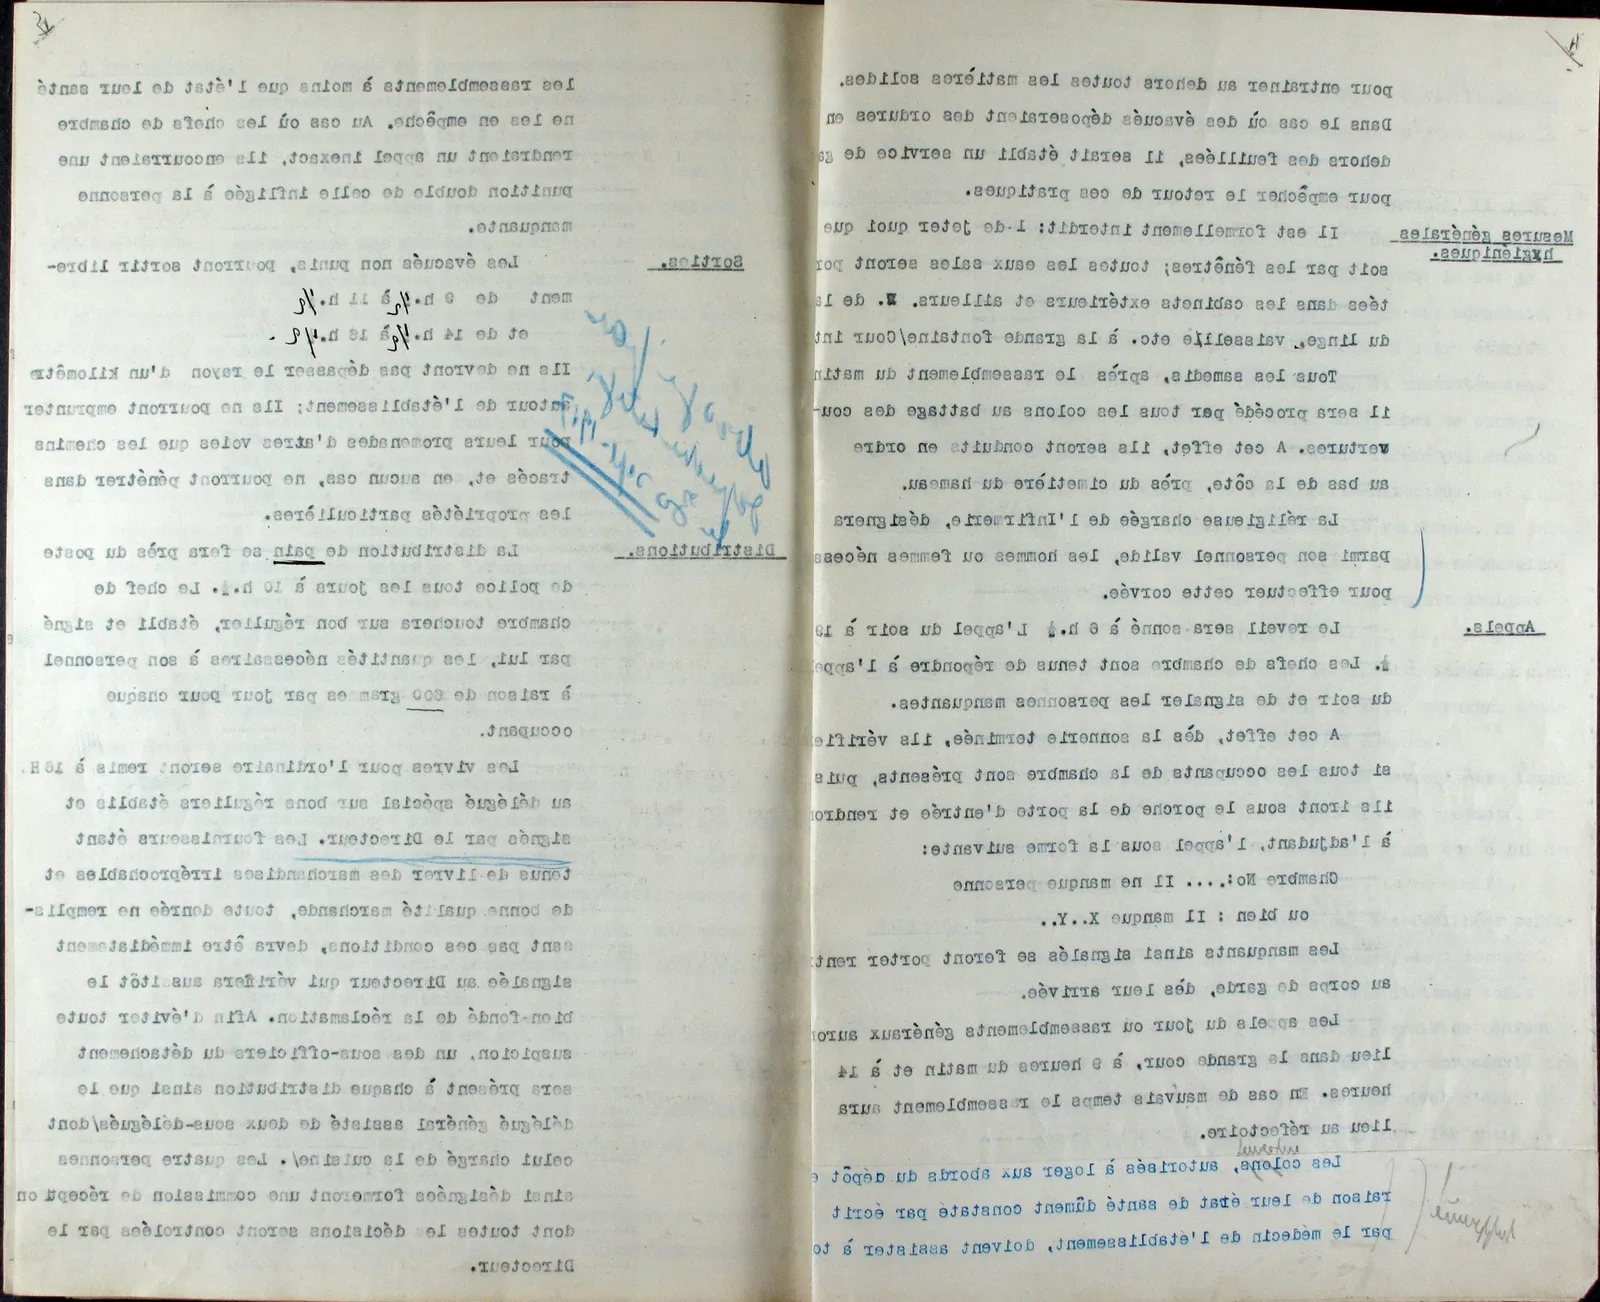 4
pour entrainer au dehors toutes les matières solides.
Dans le cas où des évacués déposeraient des ordures en
dehors des feuillées, il serait établi un service de ga
pour empêcher le retour de ces pratiques.
Mesures générales
hygiéniques.
Il est formellement interdit: 1-de jeter quoi que
soit par les fénêtres; toutes les eaux sales seront por
tées dans les cabinets extérieurs et ailleurs. 2. de la
du linge, vaisselle etc. à la grande fontaine/Cour int
Tous les samedis, après le rassemblement du matin
il sera procédé par tous les colons au battage des cou-
vertures. A cet effet, ils seront conduits en ordre
au bas de la côte, près du cimetière du hameau.
La réligieuse chargée de l'Infirmerie, désignera
parmi son personnel valide, les hommes ou femmes nécess
pour effectuer cette corvée.
Appels.
Le reveil sera sonné à 6 h.½ L'appel du soir à 19
½. Les chefs de chambre sont tenus de répondre à l'appe
du soir et de signaler les personnes manquantes.
A cet effet, dès la sonnerie terminée, ils vérifie
si tous les occupants de la chambre sont présents, puis
ils iront sous le porche de la porte d'entrée et rendro
à l'adjudant, l'appel sous la forme suivante:
Chambre No:.... Il ne manque personne
ou bien : Il manque X..Y..
Les manquants ainsi signalés se feront porter rent
au corps de garde, dès leur arrivée.
Les appels du jour ou rassemblements généraux auron
lieu dans la grande cour, à 9 heures du matin et à 14
heures. En cas de mauvais temps le rassemblement aura
lieu au réfectoire.
internés
Les colons, autorisés à loger aux abords du dépôt e
raison de leur état de santé dûment constaté par écrit
par le médecin de l'établissement, doivent assister à to
5
les rassemblements à moins que l'état de leur santé
ne les en empêche. Au cas où les chefs de chambre
rendraient un appel inexact, ils encourraient une
punition double de celle infligée à la personne
manquante.
Sorties.
Les évacués non punis, pourront sortir libre-
ment de 9 h.½ à 11 h.½
et de 14 h.½ à 16 h.½.
Ils ne devront pas dépasser le rayon d'un kilomètre
autour de l'établissement; Ils ne pourront emprunter
pour leurs promenades d'atres voies que les chemins
tracés et, en aucun cas, ne pourront pénétrer dans
les propriétés particulières.
Distributions.
La distribution de pain se fera près du poste
de police tous les jours à 10 h.½. Le chef de
chambre touchera sur bon régulier, établi et signé
par lui, les quantités nécessaires à son personnel
à raison de 600 grammes par jour pour chaque
occupant.
Les vivres pour l'ordinaire seront remis à 16 H.
au délégué spécial sur bons réguliers établis et
signés par le Directeur. Les fournisseurs étant
tenus de livrer des marchandises irréprochables et
de bonne qualité marchande, toute denrée ne remplis-
sant pas ces conditions, devra être immédiatement
signalée au Directeur qui vérifiera aussitôt le
bien-fondé de la réclamation. Afin d'éviter toute
suspicion, un des sous-officiers du détachement
sera présent à chaque distribution ainsi que le
délégué général assisté de deux sous-délégués/dont
celui chargé de la cuisine/. Les quatre personnes
ainsi désignées formeront une commission de réception
dont toutes les décisions seront controlées par le
Directeur.